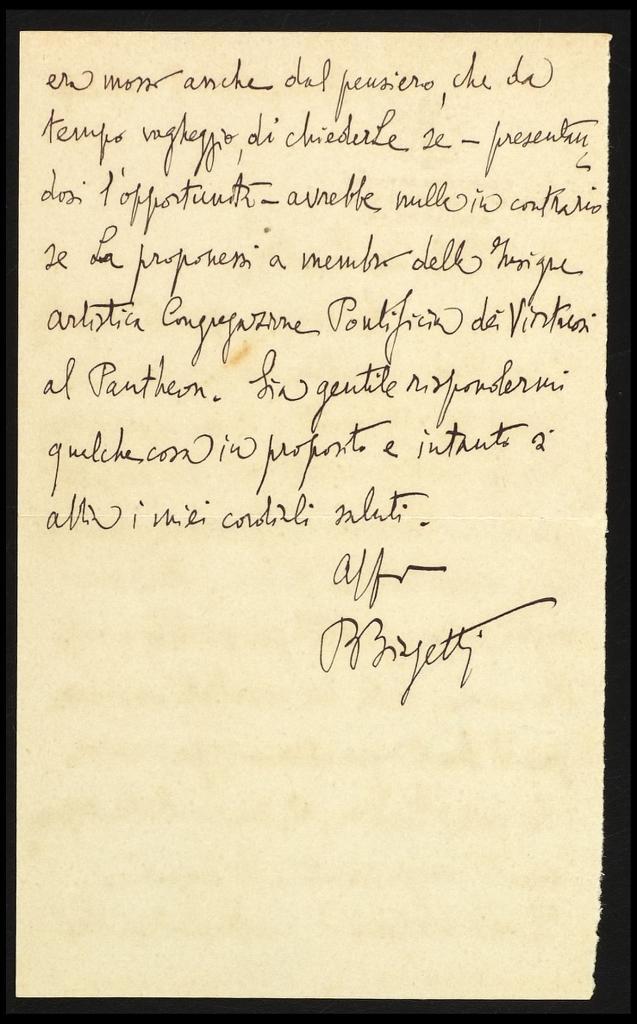 era mosso anche dal pensiero, che da
tempo vagheggio, di chiederLe se – presentan
dosi l'opportunità – avrebbe nulla in contrario
se La proponessi a membro della Insigne
artistica Congregazione Pontificia dei Virtuosi
al Pantheon. Sia gentile rispondermi
qualche cosa in proposito e intanto si
abbia i miei cordiali saluti.
Affmo
B Biagetti